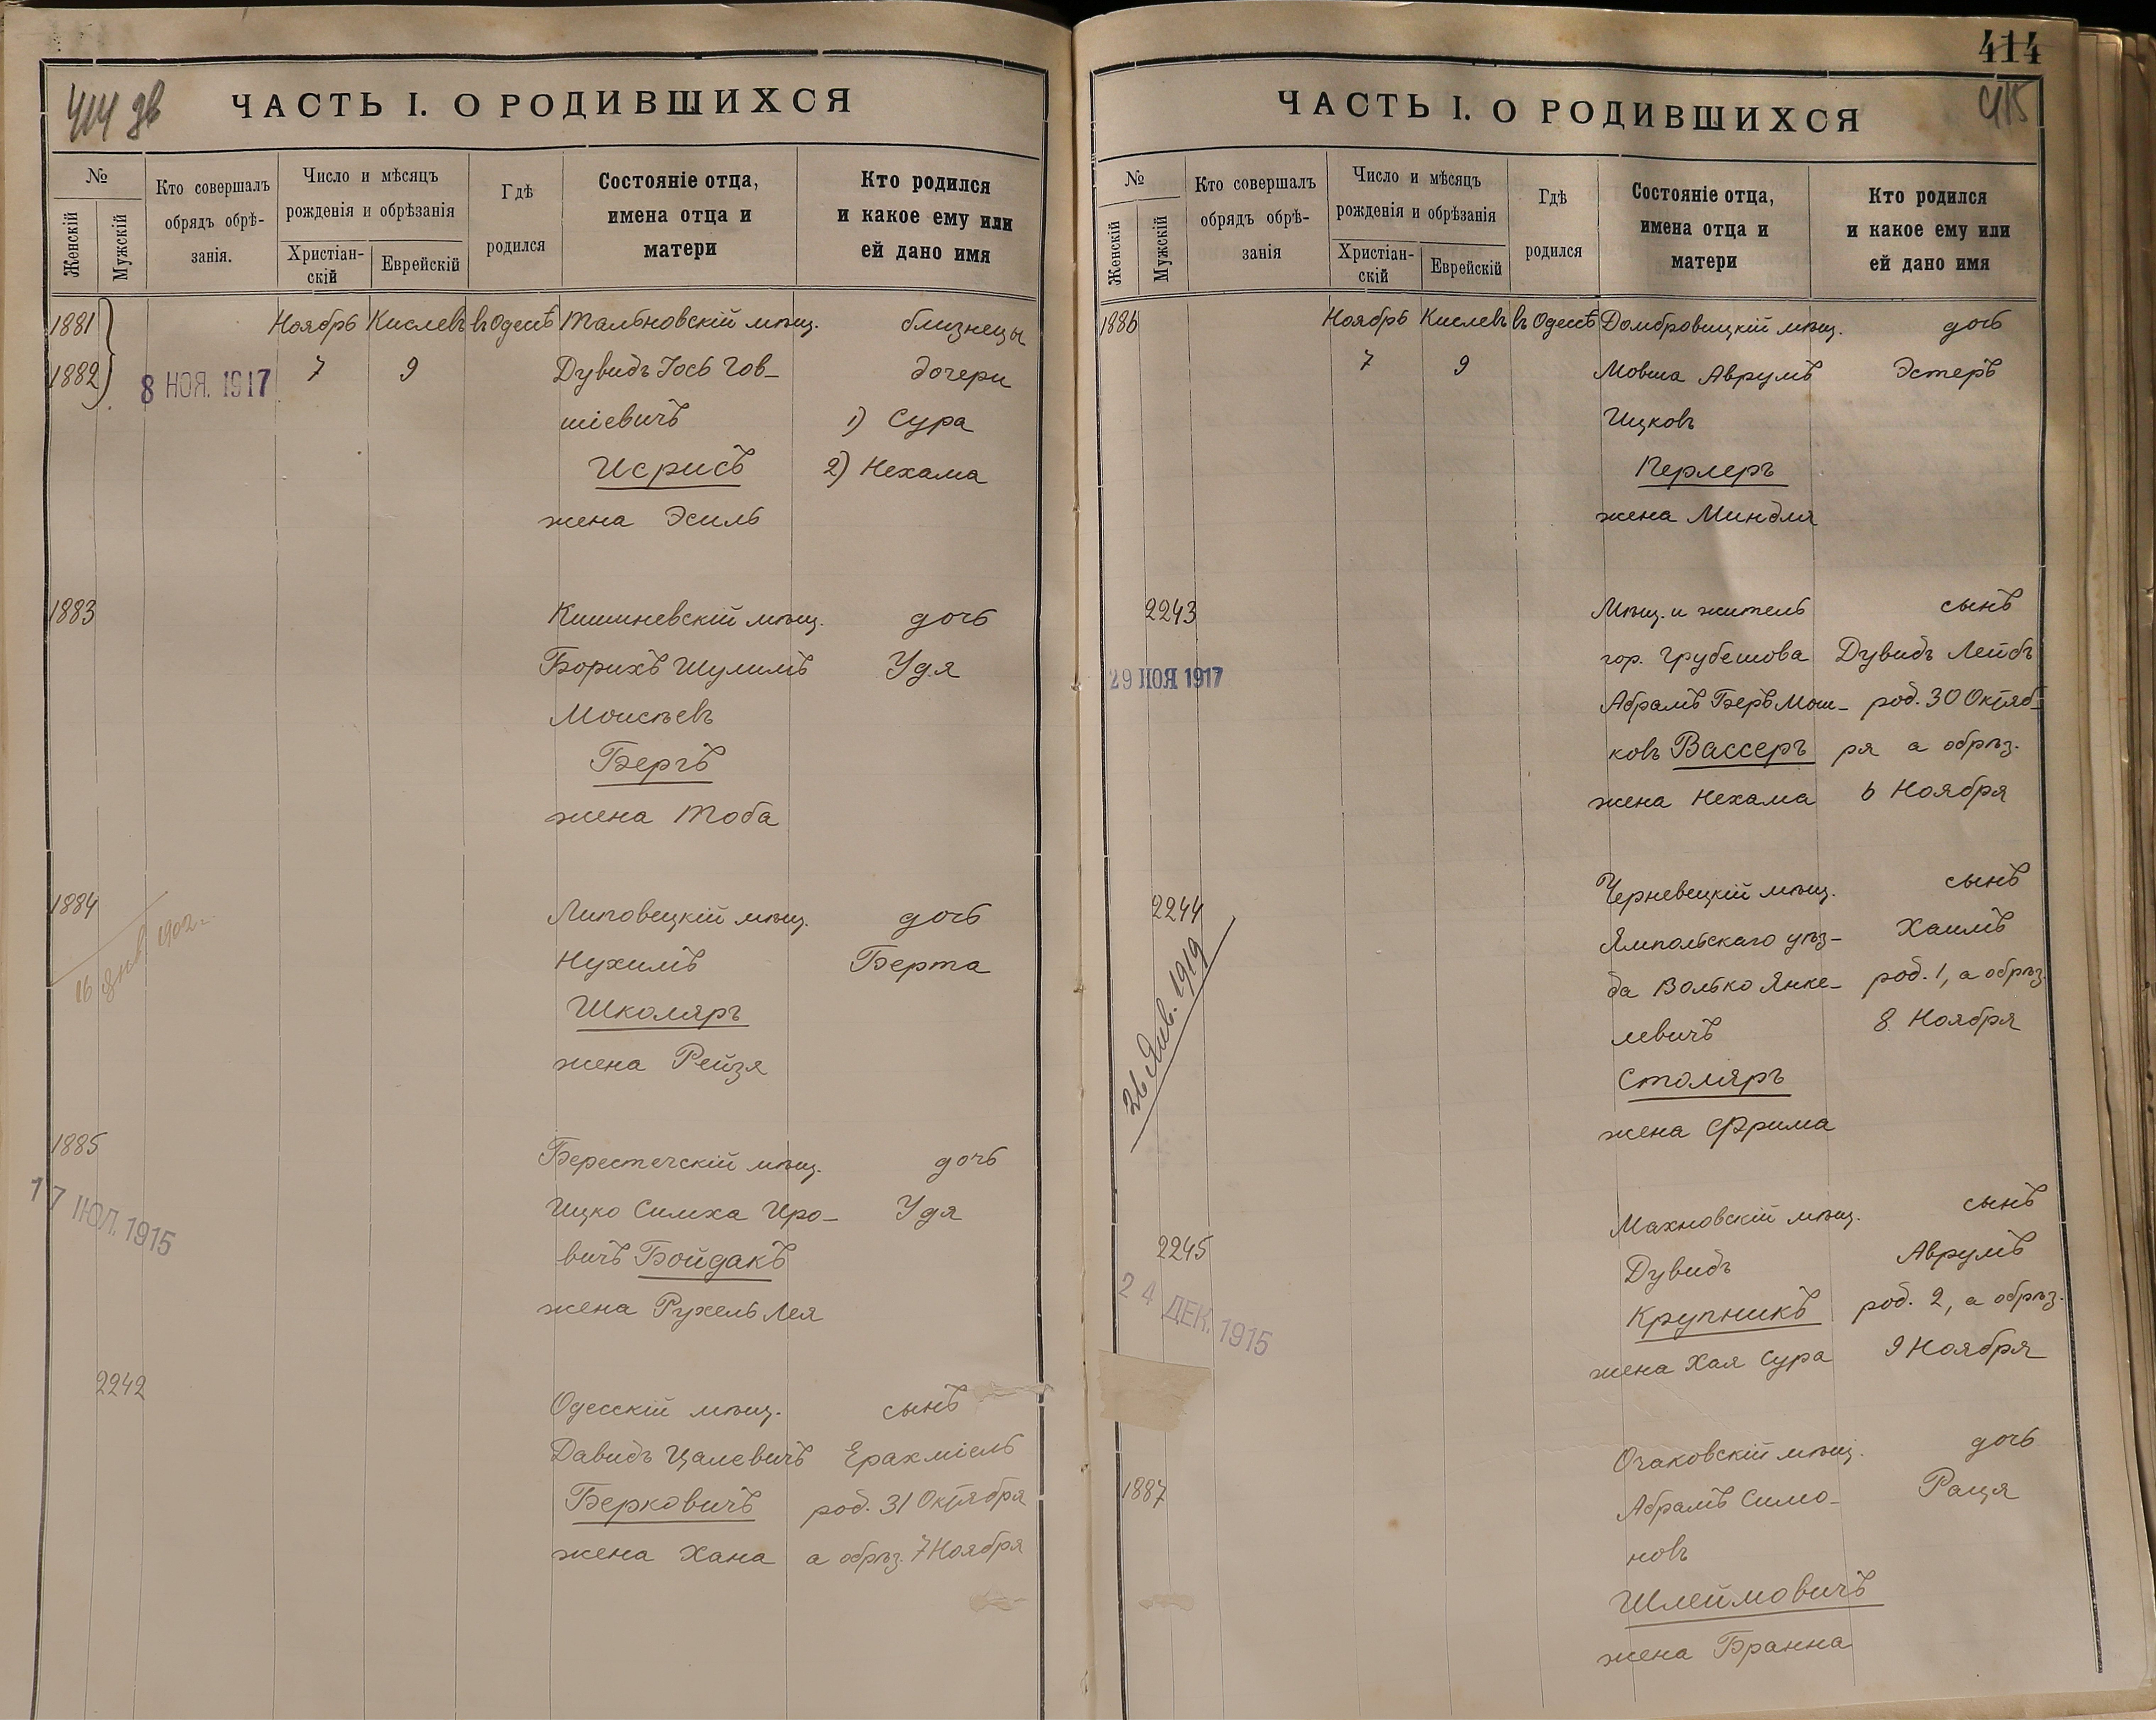 414 об
ЧАСТЬ I. О РОДИВШИХСЯ
№
Женскій
Мужскій
Кто совершалъ
обрядъ обрѣ-
занія.
Число и мѣсяцъ
рожденія и обрѣзанія
Христіан-
скій
Еврейскій
Гдѣ
родился
Состояніе отца,
имена отца и
матери
Кто родился
и какое ему или
ей дано имя
1881 Ноябрь Кислевъ въ Одессѣ Тальновскій мѣщ. близнецы
1882 8 НОЯ. 1917 7 9 Дувидъ Іось Гов- дочери
шіевичъ 1) Сура
Исрисъ 2) Нехама
жена Эсиль
1883 Кишиневскій мѣщ. дочь
Борихъ Шулимъ Удя
Моисѣевъ
Бергъ
жена Тоба
1884 Липовецкій мѣщ. дочь
16 Янв 1902 г. Нухимъ Берта
Школяръ
жена Рейзя
1885 Берестечскій мѣщ. дочь
17 ІЮЛ. 1915 Ицко Симха Иро- Удя
вичъ Бойдакъ
жена Рухель Лея
2242 Одесскій мѣщ. сынъ
Давидъ Цалевичъ Ерахміель
Берковичъ род. 31 Октября
жена Хана а обрѣз. 7 Ноября
414
415
ЧАСТЬ I. О РОДИВШИХСЯ
№
Женскій
Мужскій
Кто совершалъ
обрядъ обрѣ-
занія
Число и мѣсяцъ
рожденія и обрѣзанія
Христіан-
скій
Еврейскій
Гдѣ
родился
Состояніе отца,
имена отца и
матери
Кто родился
и какое ему или
ей дано имя
1886 Ноябрь Кислевъ въ Одессѣ Домбровицкій мѣщ. дочь
7 9 Мовша Аврумъ Эстеръ
Ицковъ
Перлеръ
жена Миндля
2243 Мѣщ. и житель сынъ
гор. Грубешова Дувидъ Лейбъ
29 НОЯ 1917 Абрамъ Беръ Мош- род. 30 Октяб-
ковъ Вассеръ ря а обрѣз.
жена Нехама 6 Ноября
2244 Черневецкій мѣщ. сынъ
Ямпольскаго уѣз- Хаимъ
26 Янв. 1919 да Волько Янке- род. 1, а обрѣз.
левичъ 8 Ноября
Столяръ
жена Фрима
Махновскій мѣщ. сынъ
2245 Дувидъ Аврумъ
24 ДЕК. 1915 Крупникъ род. 2, а обрѣз.
жена Хая Сура 9 Ноября
Очаковскій мѣщ. дочь
1887 Абрамъ Симо- Раця
новъ
Шлеймовичъ
жена Бранна